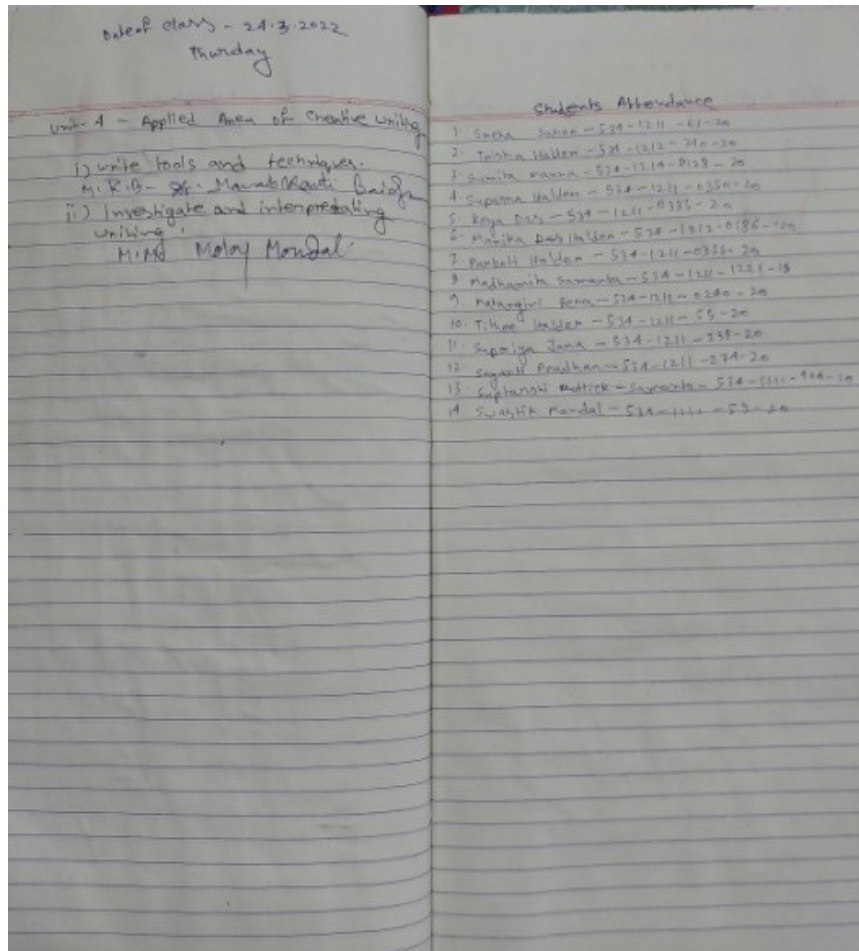 Date of class - 24.3.2022
Thursday
Unit- 4 - Applied Area of Creative Writing
i) write tools and techniques.
M.R.B-
ii) Investigate and interpretating
writing.
M.M Moloy Mondal.
Students Attendance
1. Sneha - 534-1211-61-20
2. Trisha Halder - 534-1212-740-20
3. Sumita Manna - 534-1214-0128-20
4. Suparna Halder - 534-1211-0350-20
5. Koya Das - 534-1211-0383-20
6. Manika Das Halder - 534-1212-0186-20
7. Halder - 534-1211-0355-20
8. Madhumita Samanta - 534-1211-1221-18
9. Bera - 534-1211-0240-20
10. Halder - 534-1211-55-20
11. Supriya Jana - 534-1211-238-20
12. Sayanti Pradhan - 534-1211-274-20
13. Samanta - 534-1111-404-20
14. Swastik Mandal - 534-1111-59-20